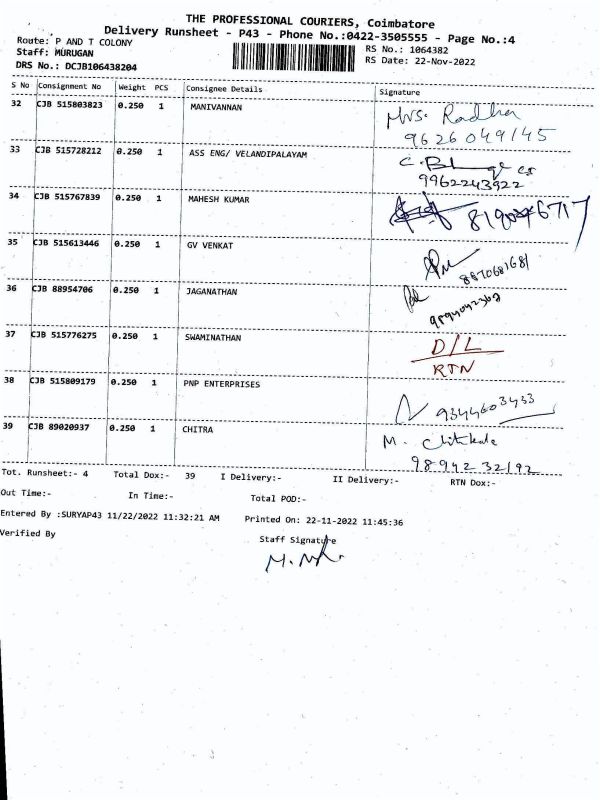 THE PROFESSIONAL COURIERS, Coimbatore
Delivery Runsheet - P43 - Phone No.:0422-3505555 - Page No.:4
Route: P AND T COLONY
RS No.: 1064382
Staff: MURUGAN
RS Date: 22-Nov-2022
DRS No.: DCJB106438204
S No Consignment No Weight PCS Consignee Details Signature
32 CJB 515803823 0.250 1 MANIVANNAN Mrs. Radha
9626049145
33 CJB 515728212 0.250 1 ASS ENG/ VELANDIPALAYAM
9962243922
34 CJB 515767839 0.250 1 MAHESH KUMAR
35 CJB 515613446 0.250 1 GV VENKAT
36 CJB 88954706 0.250 1 JAGANATHAN
37 CJB 515776275 0.250 1 SWAMINATHAN D/L
RTN
38 CJB 515809179 0.250 1 PNP ENTERPRISES 9344603433
39 CJB 89020937 0.250 1 CHITRA M.
9894232192
Tot. Runsheet:- 4 Total Dox:- 39 I Delivery:- II Delivery:- RTN Dox:-
Out Time:- In Time:- Total POD:-
Entered By :SURYAP43 11/22/2022 11:32:21 AM Printed On: 22-11-2022 11:45:36
Verified By Staff Signature